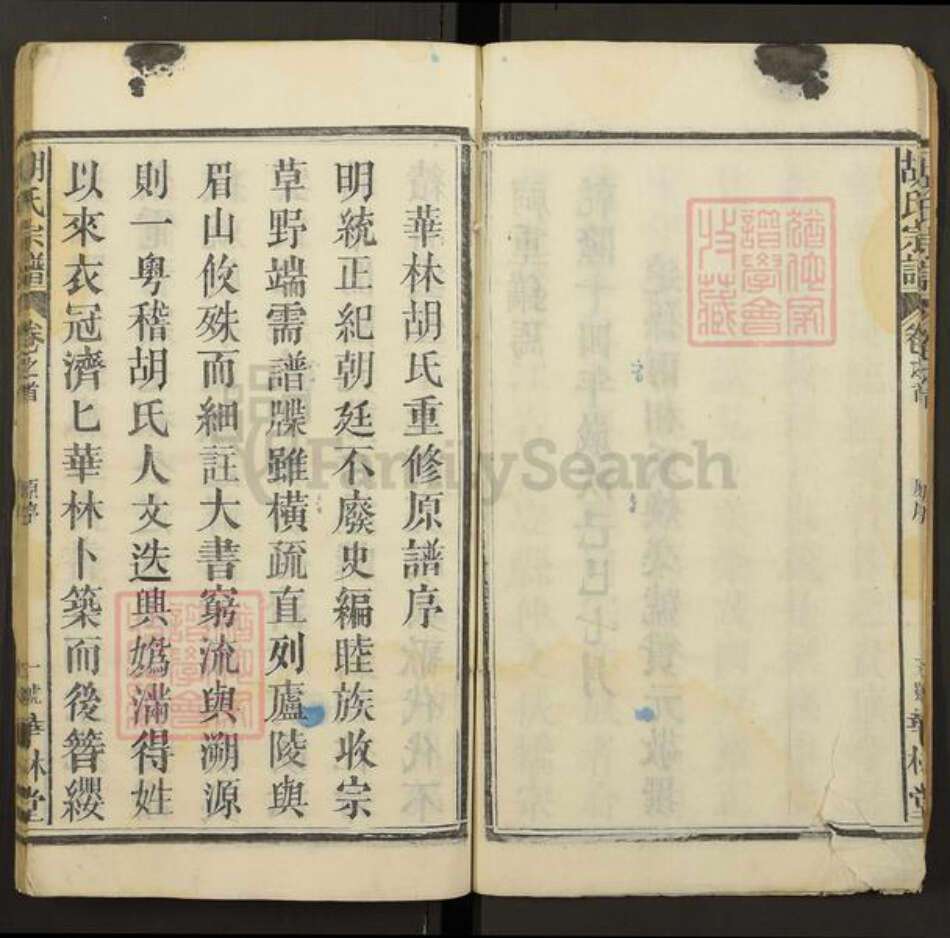 胡氏宗譜
卷之首
原序
華林堂
華林胡氏重修原譜序
明統正紀朝廷不廢史編睦族收宗
草野端需譜牒雖橫疏直列廬陵與
眉山攸殊而細註大書窮流與溯源
則一粵稽胡氏人文迭興嬀滿得姓
以來衣冠濟匕華林卜築而後簪纓
胡氏宗譜
卷之首
原序
一號
華林堂
FamilySearch